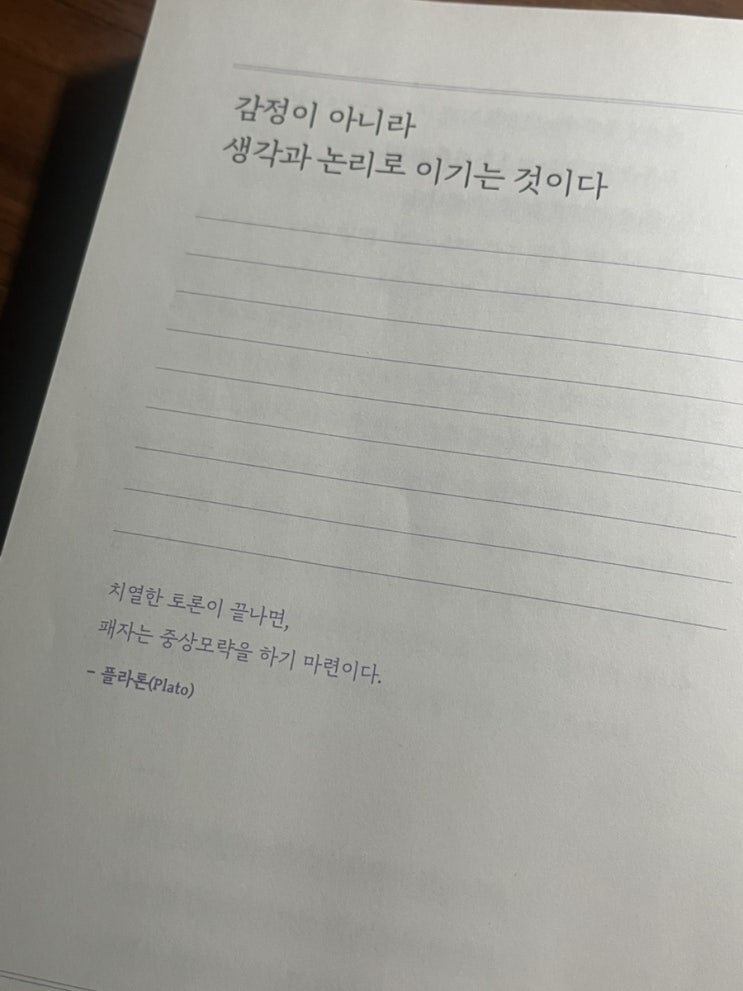 감정이 아니라
생각과 논리로 이기는 것이다
치열한 토론이 끝나면,
패자는 중상모략을 하기 마련이다.
- 플라톤(Plato)